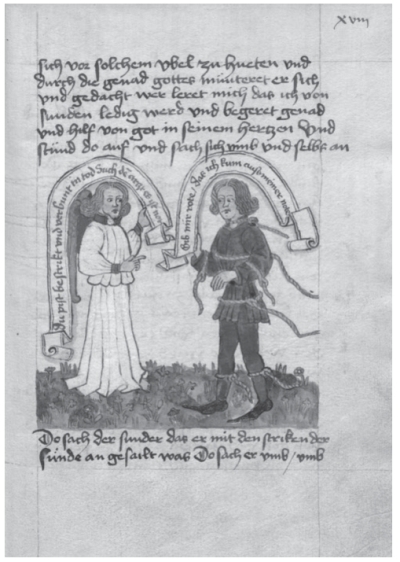 xviii
sich vor solchem vbel zu hueten vnd
durch die genad gottes muteret er sich
vnd gedacht wer leret mich das ich von
sunden ledig werd vnd begeret genad
vnd hilf von got in seinem hertzen Vnd
stund do auf vnd sach sich vmb vnd selbs an
Du pist bestrikt vnd verbunt in tod Such
Gib mir rate das ich kum auß meiner not
Do sach der sunder das er mit den striken der
sunde an gesailt was Do sach er vmb / vmb